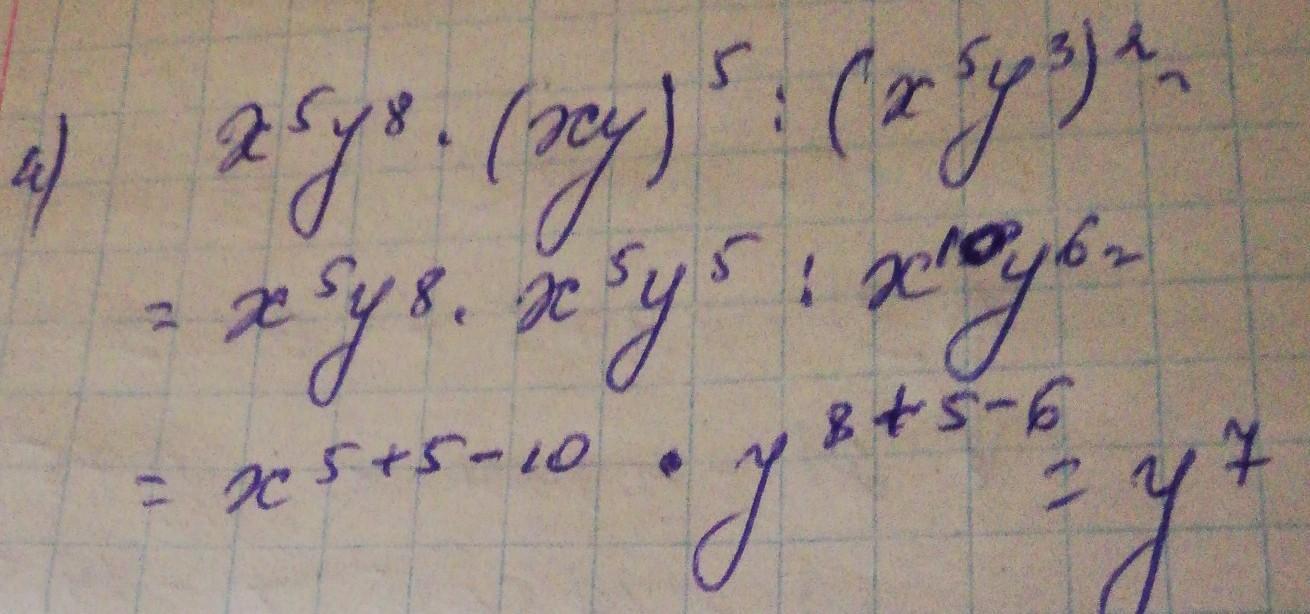 а) x⁵y⁸ · (xy)⁵ : (x⁵y³)² =
= x⁵y⁸ · x⁵y⁵ : x¹⁰y⁶ =
= x⁵⁺⁵⁻¹⁰ · y⁸⁺⁵⁻⁶ = y⁷